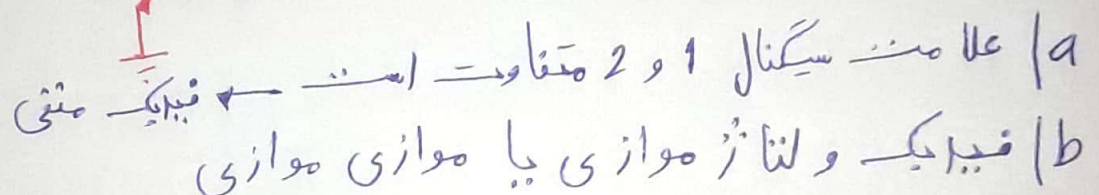 a) علامت سیگنال 1 و 2 متفاوت است ← فیدبک منفی
b) فیدبک ولتاژ موازی یا موازی موازی